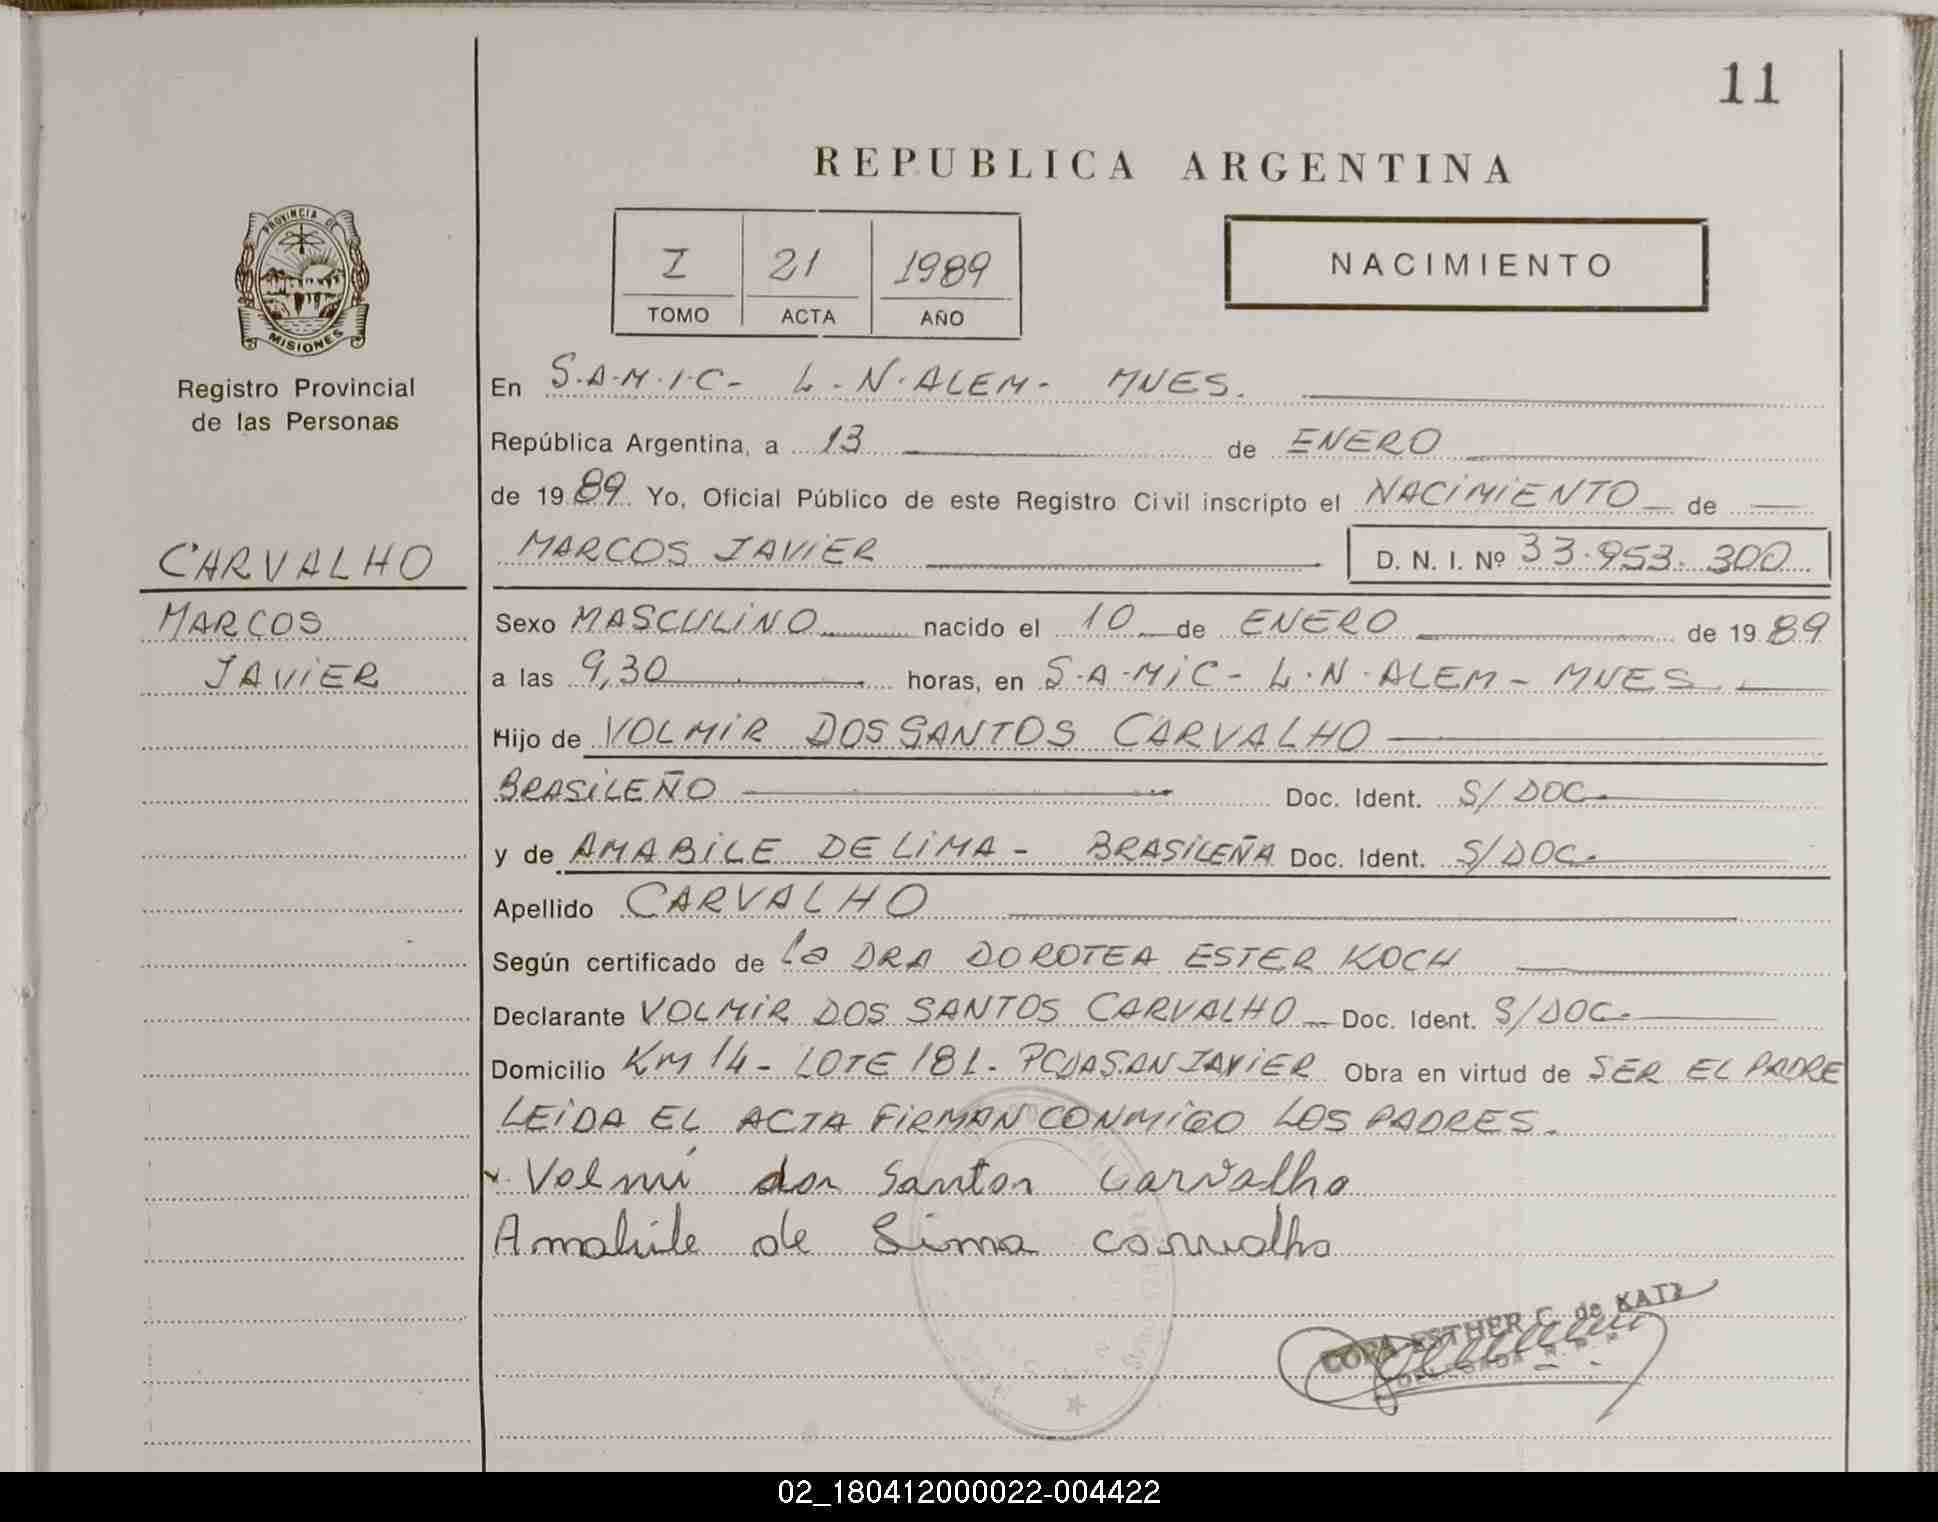 11
REPUBLICA ARGENTINA
I 21 1989
TOMO ACTA AÑO
NACIMIENTO
PROVINCIA DE
MISIONES
Registro Provincial
de las Personas
CARVALHO
MARCOS
JAVIER
En S.A.M.I.C- L.N.ALEM- MNES.
República Argentina, a 13 de ENERO
de 1989 Yo, Oficial Público de este Registro Civil inscripto el NACIMIENTO de
MARCOS JAVIER D. N. I. Nº 33.953.300
Sexo MASCULINO nacido el 10 de ENERO de 1989
a las 9,30 horas, en S.A.MIC- L.N.ALEM- MNES.
Hijo de VOLMIR DOS SANTOS CARVALHO
BRASILEÑO Doc. Ident. S/DOC.
y de AMABILE DE LIMA - BRASILEÑA Doc. Ident. S/DOC.
Apellido CARVALHO
Según certificado de la DRA DOROTEA ESTER KOCH
Declarante VOLMIR DOS SANTOS CARVALHO Doc. Ident. S/DOC.
Domicilio KM 14- LOTE 181- PCDA SAN JAVIER Obra en virtud de SER EL PADRE
LEIDA EL ACTA FIRMAN CONMIGO LOS PADRES.
Volmi dos Santos Carvalho
Amabile de Lima carvalho
ESTHER C. de KATZ
DELEGADA
02_180412000022-004422